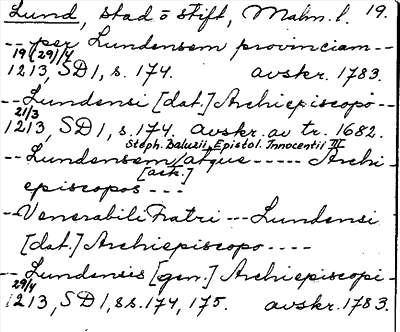 Lund, stad o stift, Malm. l. 19.
-- per Lundensem provinciam --
19 (29)/4
1213, SD1, s. 174. avskr. 1783.
-- Lundensi [dat.] Archiepiscopo --
21/3
1213, SD1, s. 174. avskr. av tr. 1682.
Steph. Baluzii, Epistol. Innocentii III
-- Lundensem/atque ----- Archi-
[ack.]
episcopos ---
-- Venerabili Fratri --- Lundensi
[dat.] Archiepiscopo ----
-- Lundensis [gen.] Archiepiscopi -
29/4
1213, SD1, ss. 174, 175. avskr. 1783.